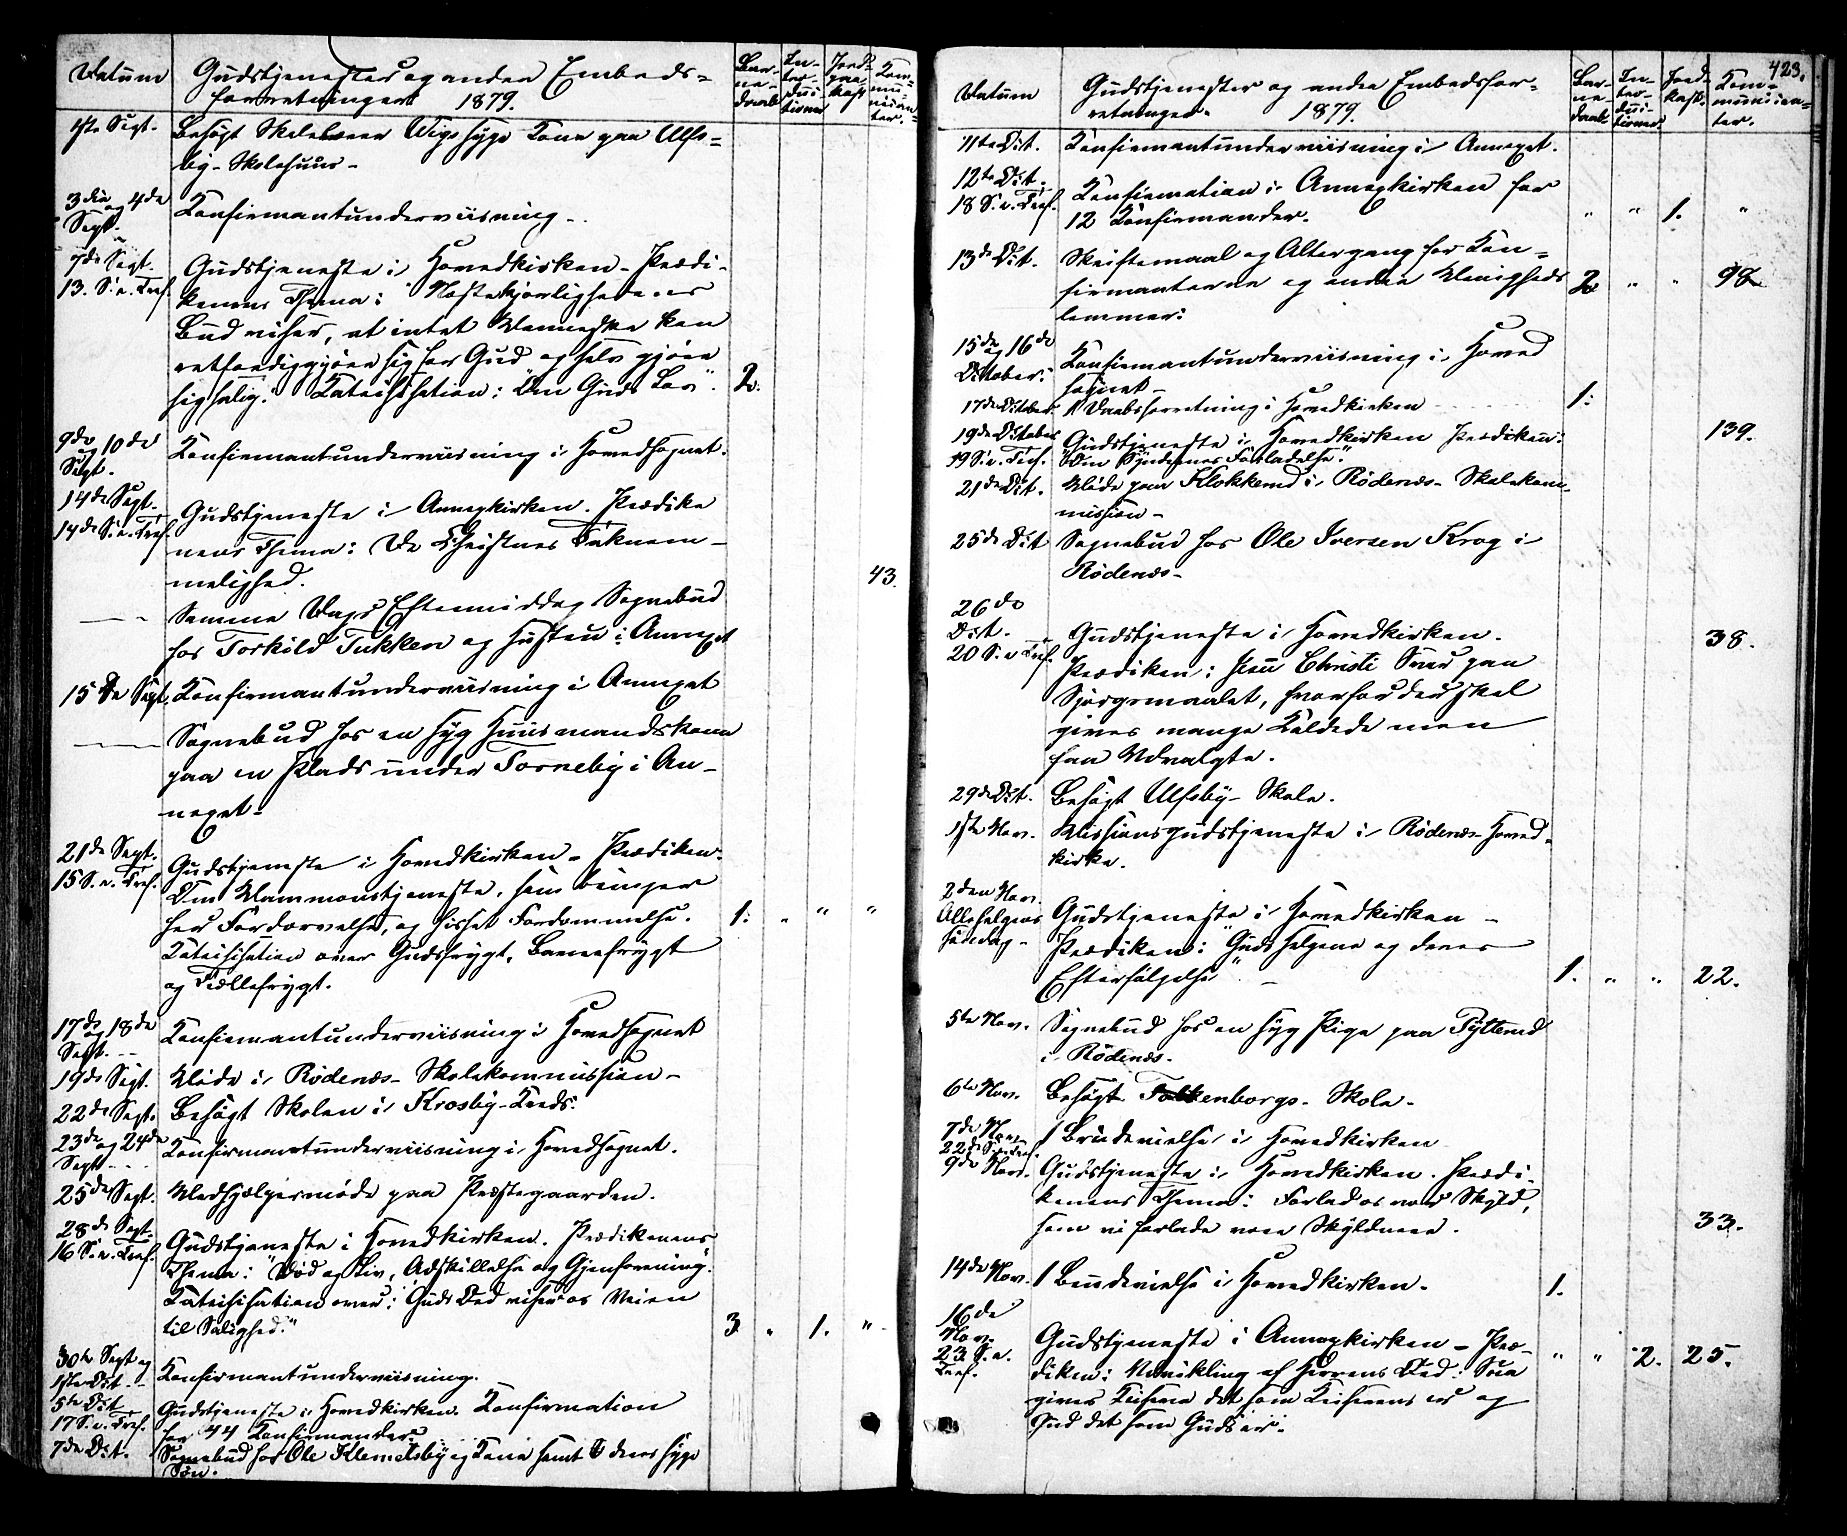 Datum
Gudstjenester og andre Embeds-
forretninger 1879.
Bar-
ne-
daab
In-
tro-
duc-
tioner
Jords-
paa-
kast
Kom-
mu-
nican-
ter.
1ste Sept.
Besøgt Skolelærer Wigs syge Kone paa Ulfs-
by-Skolehuus-
3die og 4de
Sept.
Konfirmantunderviisning-
7de Sept.
13. S. e. Tref.
Gudstjeneste i Hovedkirken-Prædi-
kenens Thema: Næstekjærlighedens
Bud viser, at intet Menneske kan
retfærdiggjøre sig for Gud og selv gjøre
sig salig. Katechisation: "Om Guds Lov". 2.
9de og 10de
Sept.
Konfirmantunderviisning i Hovedsognet.
14de Sept.
14de S. e. Tref.
Gudstjeneste i Annexkirken. Prædike
nens Thema: De Christnes Taknem-
melighed. 43.
Samme Dags Eftermiddag Sognebud
hos Torkild Tukken og Hustru i Annexet
15de Sept.
Konfirmantunderviisning i Annexet
Sognebud hos en syg Huusmandskone
paa en Plads under Torneby i An-
nexet-
21de Sept.
15 S. e. Tref.
Gudstjeneste i Hovedkirken-Prædiken.
Om Mammonstjeneste, som bringer
her Fordærvelse, og hisset Fordømmelse. 1. " " "
Katechisation over Gudsfrygt, Barnefrygt
og Trællefrygt.
17de og 18de
Sept.
Konfirmantunderviisning i Hovedsognet
19de Sept.
Møde i Rødenæs-Skolekommission-
22de Sept.
Besøgt Skolen i Krosby-Kreds.
23de og 24de
Sept.
Konfirmantunderviisning i Hovedsognet.
25de Sept.
Medhjælpermøde paa Præstegaarden.
28de Sept.
16 S. e. Tref.
Gudstjeneste i Hovedkirken. Prædikenens
Thema: "Død og Liv, Adskillelse og Gjenforening".
Katechisation over: "Guds Ord viser os Veien
til Salighed." 3 " 1. "
30te Sept og
1ste Oct.
Konfirmantunderviisning.
5te Oct.
17 S. e. Tref.
Gudstjeneste i Hovedkirken. Konfirmation
for 44 Konfirmander.
7de Oct.
Sognebud hos Ole Klemetsby og Kone samt deres syge
Søn.
423.
Datum
Gudstjenester og andre Embedsfor-
retninger. 1879.
Bar-
ne-
daab
In-
tro-
duc-
tioner
Jord-
kast.
Kom-
munican-
ter.
11te Oct.
Konfirmantunderviisning i Annexet.
12te Oct.
18 S. e. Tref.
Konfirmation i Annexkirken for
12 Konfirmander. " " 1. "
13de Oct.
Skriftemaal og Altergang for Kon-
firmanterne og andre Menigheds 2. " " 92
lemmer.
15de og 16de
October.
Konfirmantunderviisning i Hoved
sognet-
17de October
1 Daabsforretning i Hovedkirken 1.
19de October
19 S. e. Tref.
Gudstjeneste i Hovedkirken Prædiken: 139.
"Om Syndernes Forladelse."
21de Oct.
Møde paa Klokkerud i Rødenæs-Skolekom-
mission-
25de Oct
Sognebud hos Ole Iversen Krog i
Rødenæs-
26de
Oct.
20 S. e. Tref.
Gudstjeneste i Hovedkirken. 38.
Prædiken: Jesu Christi Svar paa
Spørgsmaalet, hvorfor der skal
gives mange Kaldede men
faa Udvalgte.
29de Oct.
Besøgt Ulfsby-Skole.
1ste Nov.
Missionsgudstjeneste i Rødenæs-Hoved-
kirke.
2den Nov.
Allehelgens
Søndag-
Gudstjeneste i Hovedkirken-
Prædiken: "Guds helgene og deres
Efterfølgelse" 1. " " 22.
5te Nov.
Sognebud hos en syg Pige paa Tytterud
i Rødenæs.
6te Nov.
Besøgt Folkenborgs-Skole-
7de Nov.
1 Brudevielse i Hovedkirken
22de S. e. Tref.
9de Nov.
Gudstjeneste i Hovedkirken. Prædi-
kenens Thema: Forlad os vor Skyld,
som vi forlade vore Skyldnere. 33.
14de Nov.
1 Brudevielse i Hovedkirken. 1.
16de
Nov.
23 S. e.
Tref.
Gudstjeneste i Annexkirken-Præ- " " 2. 25.
diken: Udvikling af Herrens Ord: "Saa
giver Keiseren det som Keiserens er og
Gud det som Guds er".